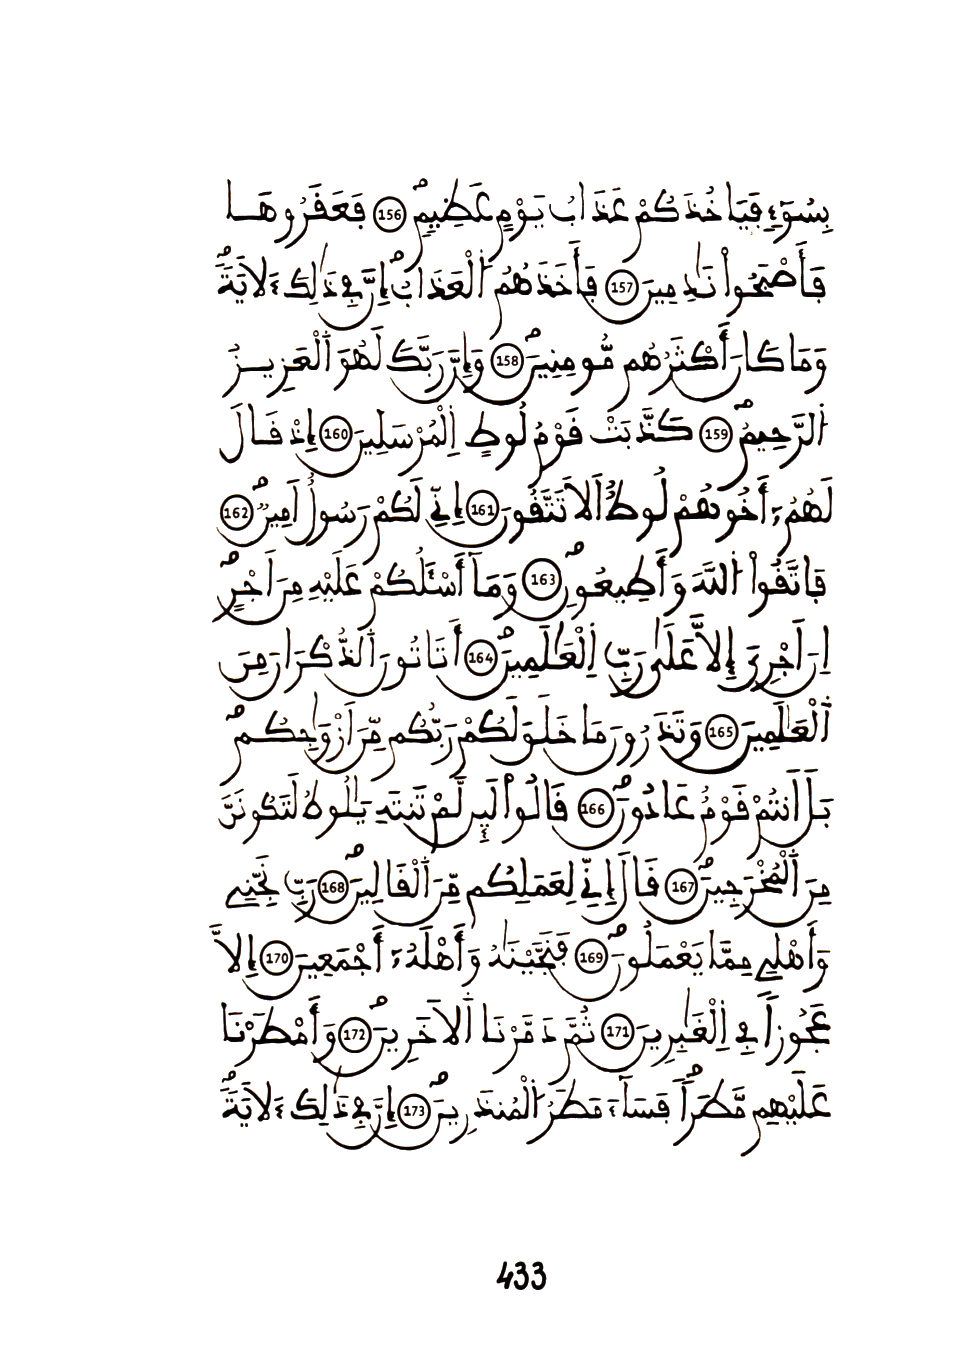 بِسُوٓءٖ فَيَاخُذَكُمْ عَذَابُ يَوْمٍ عَظِيمٖ 156 فَعَقَرُوهَا
فَأَصْبَحُوا۟ نَٰدِمِينَ 157 فَأَخَذَهُمُ اُ۬لْعَذَابُ إِنَّ فِي ذَٰلِكَ ءَلَايَةٗ
وَمَا كَانَ أَكْثَرُهُم مُّومِنِينَ 158 وَإِنَّ رَبَّكَ لَهُوَ اَ۬لْعَزِيزُ
اُ۬لرَّحِيمُ 159 كَذَّبَتْ قَوْمُ لُوطٍ اِ۬لْمُرْسَلِينَ 160 إِذْ قَالَ
لَهُمُۥٓ أَخُوهُمْ لُوطٌ اَلَا تَتَّقُونَ 161 إِنِّي لَكُمْ رَسُولٌ اَمِينٞ 162
فَاتَّقُوا۟ اُ۬للَّهَ وَأَطِيعُونِ 163 وَمَآ أَسْـَٔلُكُمْ عَلَيْهِ مِنَ اَجْرٍ
اِنَ اَجْرِيَ إِلَّا عَلَىٰ رَبِّ اِ۬لْعَٰلَمِينَ 164 أَتَاتُونَ اَ۬لذُّكْرَانَ مِنَ
اَ۬لْعَٰلَمِينَ 165 وَتَذَرُونَ مَا خَلَقَ لَكُمْ رَبُّكُم مِّنَ اَزْوَٰجِكُم
بَلَ اَنتُمْ قَوْمٌ عَادُونَ 166 قَالُوا۟ لَئِن لَّمْ تَنتَهِ يَٰلُوطُ لَتَكُونَنَّ
مِنَ اَ۬لْمُخْرَجِينَ 167 قَالَ إِنِّي لِعَمَلِكُم مِّنَ اَ۬لْقَالِينَ 168 رَبِّ نَجِّنِي
وَأَهْلِي مِمَّا يَعْمَلُونَ 169 فَنَجَّيْنَٰهُ وَأَهْلَهُۥٓ أَجْمَعِينَ 170 إِلَّا
عَجُوزاٗ فِي اِ۬لْغَٰبِرِينَ 171 ثُمَّ دَمَّرْنَا اَ۬لَاخَرِينَ 172 وَأَمْطَرْنَا
عَلَيْهِم مَّطَراٗ فَسَآءَ مَطَرُ اُ۬لْمُنذَرِينَ 173 إِنَّ فِي ذَٰلِكَ ءَلَايَةٗ
433